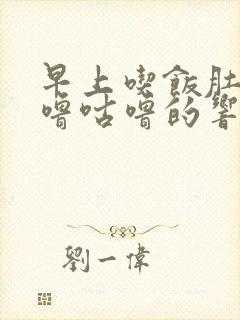 早上喫飯肚
嚕咕嚕的響
劉一偉